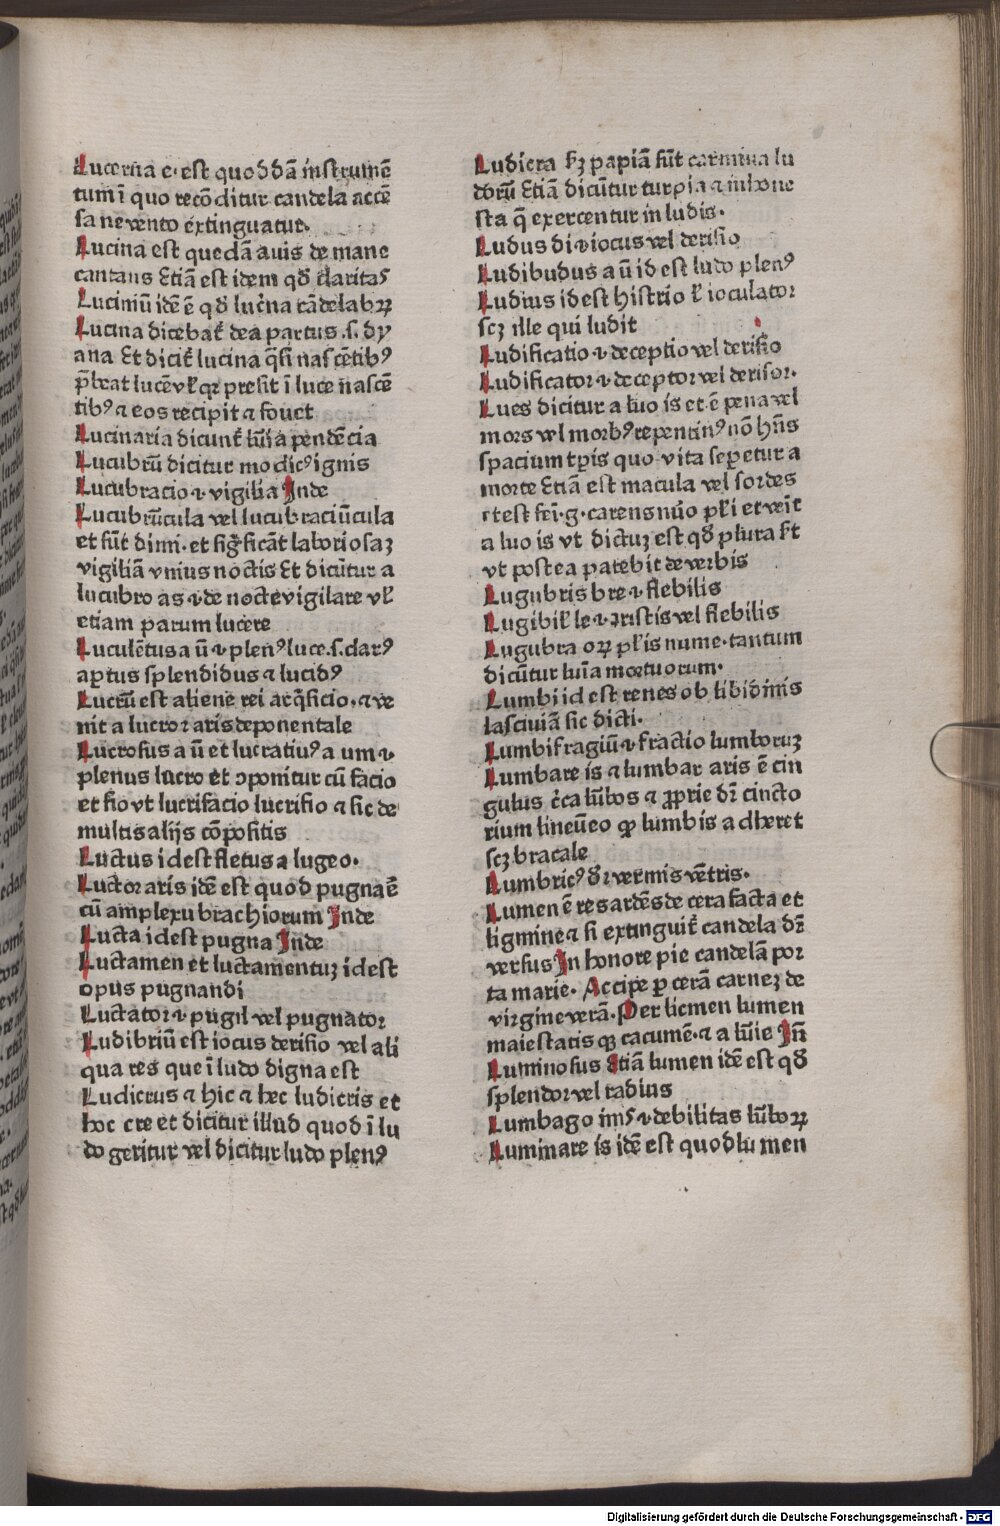 Lucerna e· est quoddā instrumē
tum ī quo recōditur candela accē
sa ne vento extinguatur.
Lucina est quedā auis de mane
cantans Etiā est idem qđ claritaꝰ
Luciniū idē ē qđ lucͥna cādelabꝝ
Lucina dicebatʼ dea partus .s. dy
ana Et dicitʼ lucina q̄si nascētibꝰ
p̄beat lucē vʼl qꝛ presit ī luce nascē
tibꝰ ⁊ eos recipit ⁊ fouet
Lucinaria dicuntʼ luīa pendēcia
Lucubrū dicitur modicꝰ ignis
Lucubracio ·i· vigilia Inde
Lucubrūcula vel lucubraciūcula
et sūt dimi· et sigͥficāt laboriosaꝫ
vigiliā vnius noctis Et dicūtur a
lucubro as ·i· de nocte vigilare vʼl
etiam parum lucere
Luculētus a ū ·i· plenꝰ luce .s. clarꝰ
aptus splendidus ⁊ lucidꝰ
Lucrū est aliene rei acq̄sicio· ⁊ ve
nit a lucror aris deponentale
Lucrosus a ū et lucratiuꝰ a um ·i·
plenus lucro et ꝯponitur cū facio
et fio vt lucrifacio lucrifio ⁊ sic de
multis alijs cōpositis
Luctus id est fletus a lugeo·
Luctor aris idē est quod pugnaē
cū amplexu brachiorum Inde
Lucta id est pugna Inde
Luctamen et luctamentuꝫ id est
opus pugnandi
Luctator ·i· pugil vel pugnator
Ludibriū est iocus derisio vel ali
qua res que ī ludo digna est
Ludicrus ⁊ hic ⁊ hec ludicris et
hoc cre et dicitur illud quod ī lu
do geritur vel dicitur ludo plenꝰ
Ludicra sꝫ papiā sūt carmina lu
dorū Etiā dicūtur turpia ⁊ inhone
sta q̄ exercentur in ludis·
Ludus di ·i· iocus vel derisio
Ludibudus a ū id est ludo plenꝰ
Ludius id est histrio vʼl ioculator
scꝫ ille qui ludit
Ludificatio ·i· deceptio vel derisio
Ludificator ·i· deceptor vel derisor·
Lues dicitur a luo is et ē pena vel
mors vel morbꝰ repentinꝰ nō hn̄s
spacium tꝑis quo vita seꝑetur a
morte Etiā est macula vel sordes
et est fei· g· carens nūo pʼli et veītʼ
a luo is vt dictuꝫ est qđ plura stʼ
vt postea patebit de verbis
Lugubris bre ·i· flebilis
Lugibilʼ le ·i· tristis vel flebilis
Lugubra oꝝ pʼlis nume· tantum
dicūtur luīa mortuorum·
Lumbi id est renes ob libidinis
lasciuiā sic dicti·
Lumbifragiū ·i· fractio lumboruꝫ
Lumbare is ⁊ lumbar aris ē cin
gulus cͥca lūbos ⁊ ꝓprie dr̄ cincto
rium lineūeo ꝙ lumbis adheret
scꝫ bracale
Lumbricꝰ dr̄ vermis vētris·
Lumen ē res ardēs de cera facta et
ligmine ⁊ si extinguitʼ candela dr̄
versus In honore pie candelā por
ta marie· Accipe ꝑ cerā carneꝫ de
virgine verā· Per licmen lumen
maiestatis qꝫ cacumē· ⁊ a lūie Iñ
Luminosus Etiā lumen idē est qđ
splendor vel radius
Lumbago inis ·i· debilitas lūboꝝ
Luminare is idē est quod lumen
Digitalisierung gefördert durch die Deutsche Forschungsgemeinschaft - DFG